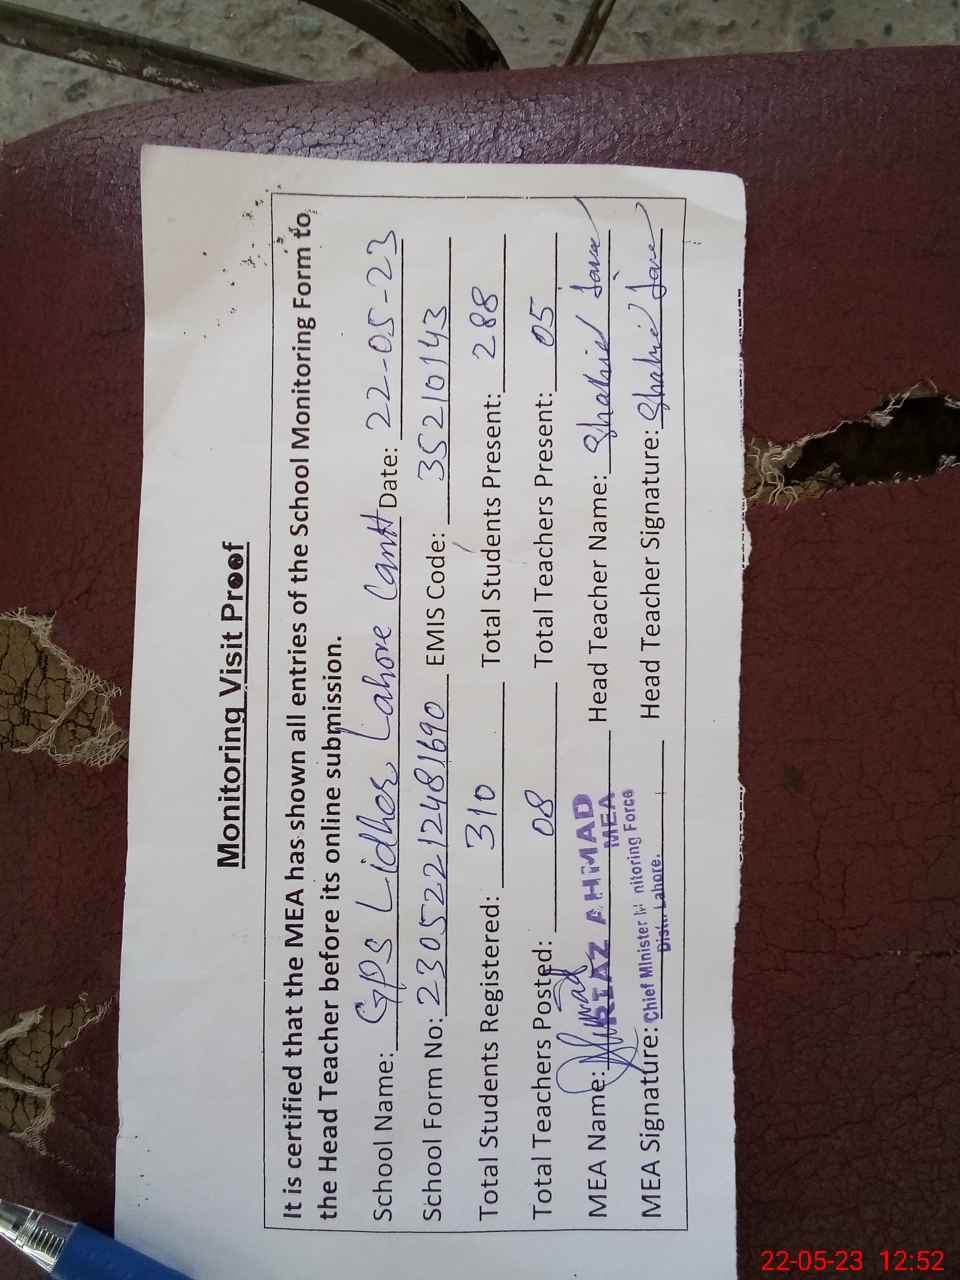 Monitoring Visit Proof
It is certified that the MEA has shown all entries of the School Monitoring Form to
the Head Teacher before its online submission.
School Name: GPS Lidher Lahore Cantt Date: 22-05-23
School Form No: 230522121248​1690 EMIS Code: 35210143
Total Students Registered: 310 Total Students Present: 288
Total Teachers Posted: 08 Total Teachers Present: 05
MEA Name: RIAZ AHMAD Head Teacher Name: Shahid
MEA
MEA Signature: Chief Minister Monitoring Force Head Teacher Signature: Shahid
Distt. Lahore.
22-05-23 12:52